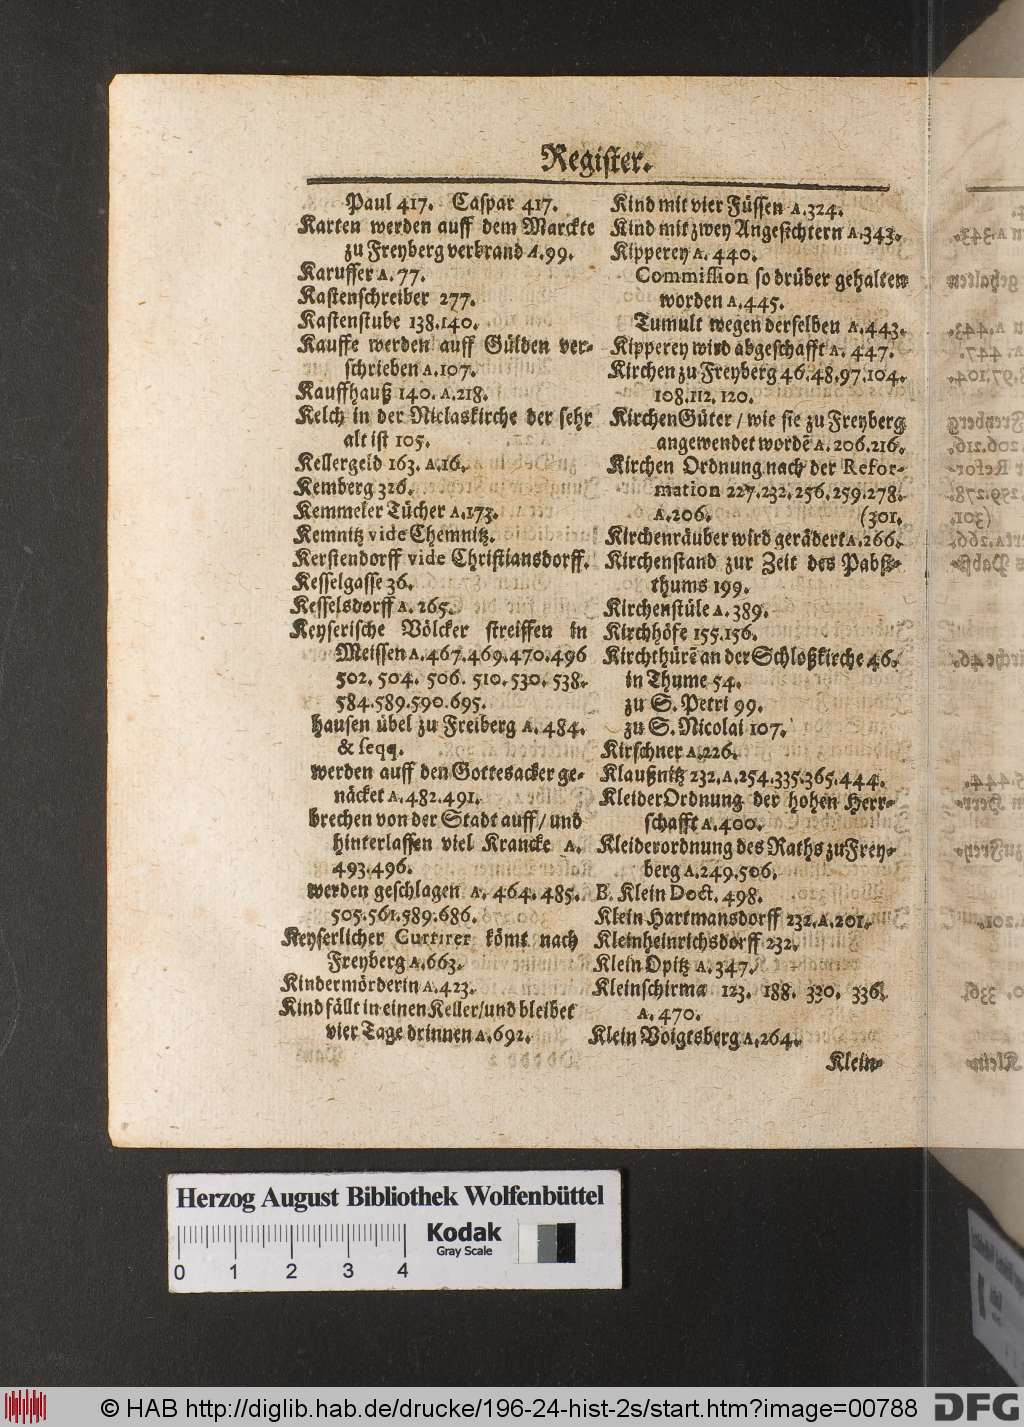 Register.
Paul 417. Caspar 417.
Karten werden auff dem Marckte
zu Freyberg verbrand A. 99.
Karusser A. 77.
Kastenschreiber 277.
Kastenstube 138.140.
Kauffe werden auff Gülden ver-
schrieben A. 107.
Kauffhauß 140. A. 218.
Kelch in der Niclaskirche der sehr
alt ist 105.
Kellergeld 163. A. 16.
Kemberg 326.
Kemmeker Tücher A. 173.
Kemnitz vide Chemnitz.
Kerstendorff vide Christiansdorff.
Kesselgasse 36.
Kesselsdorff A. 265.
Keyserische Völcker streiffen in
Meissen A. 467.469.470.496
502. 504. 506. 510. 530. 538.
584.589.590.695.
hausen übel zu Freiberg A. 484.
& seqq.
werden auff den Gottesacker ge-
näcket A. 482.491.
brechen von der Stadt auff / und
hinterlassen viel Krancke A.
493.496.
werden geschlagen A. 464. 485.
505.561.589.686.
Keyserlicher Currirer kömt nach
Freyberg A. 663.
Kindermörderin A. 423.
Kind fällt in einen Keller / und bleibet
vier Tage drinnen A. 692.
Kind mit vier Füssen A. 324.
Kind mit zwey Angesichtern A. 343.
Kipperey A. 440.
Commission so drüber gehalten
worden A. 445.
Tumult wegen derselben A. 443.
Kipperey wird abgeschafft A. 447.
Kirchen zu Freyberg 46.48.97.104.
108.112.120.
KirchenGüter / wie sie zu Freyberg
angewendet wordē A. 206.216.
Kirchen Ordnung nach der Refor-
mation 227.232.256.259.278.
A. 206. (301.
Kirchenräuber wird gerädert A. 266.
Kirchenstand zur Zeit des Pabst-
thums 199.
Kirchenstüle A. 389.
Kirchhöfe 155.156.
Kirchthürē an der Schloßkirche 46.
in Thume 54.
zu S. Petri 99.
zu S. Nicolai 107.
Kirschner A. 226.
Klaußnitz 232. A. 254.335.365.444.
KleiderOrdnung der hohen Herr-
schafft A. 400.
Kleiderordnung des Raths zu Frey-
berg A. 249.506.
B. Klein Doct. 498.
Klein Hartmansdorff 232. A. 201.
Kleinheinrichsdorff 232.
Klein Opitz A. 347.
Kleinschirma 123. 188. 330. 336.
A. 470.
Klein Voigtsberg A. 264.
Klein-
Herzog August Bibliothek Wolfenbüttel
0 1 2 3 4
Kodak
Gray Scale
© HAB http://diglib.hab.de/drucke/196-24-hist-2s/start.htm?image=00788
DFG